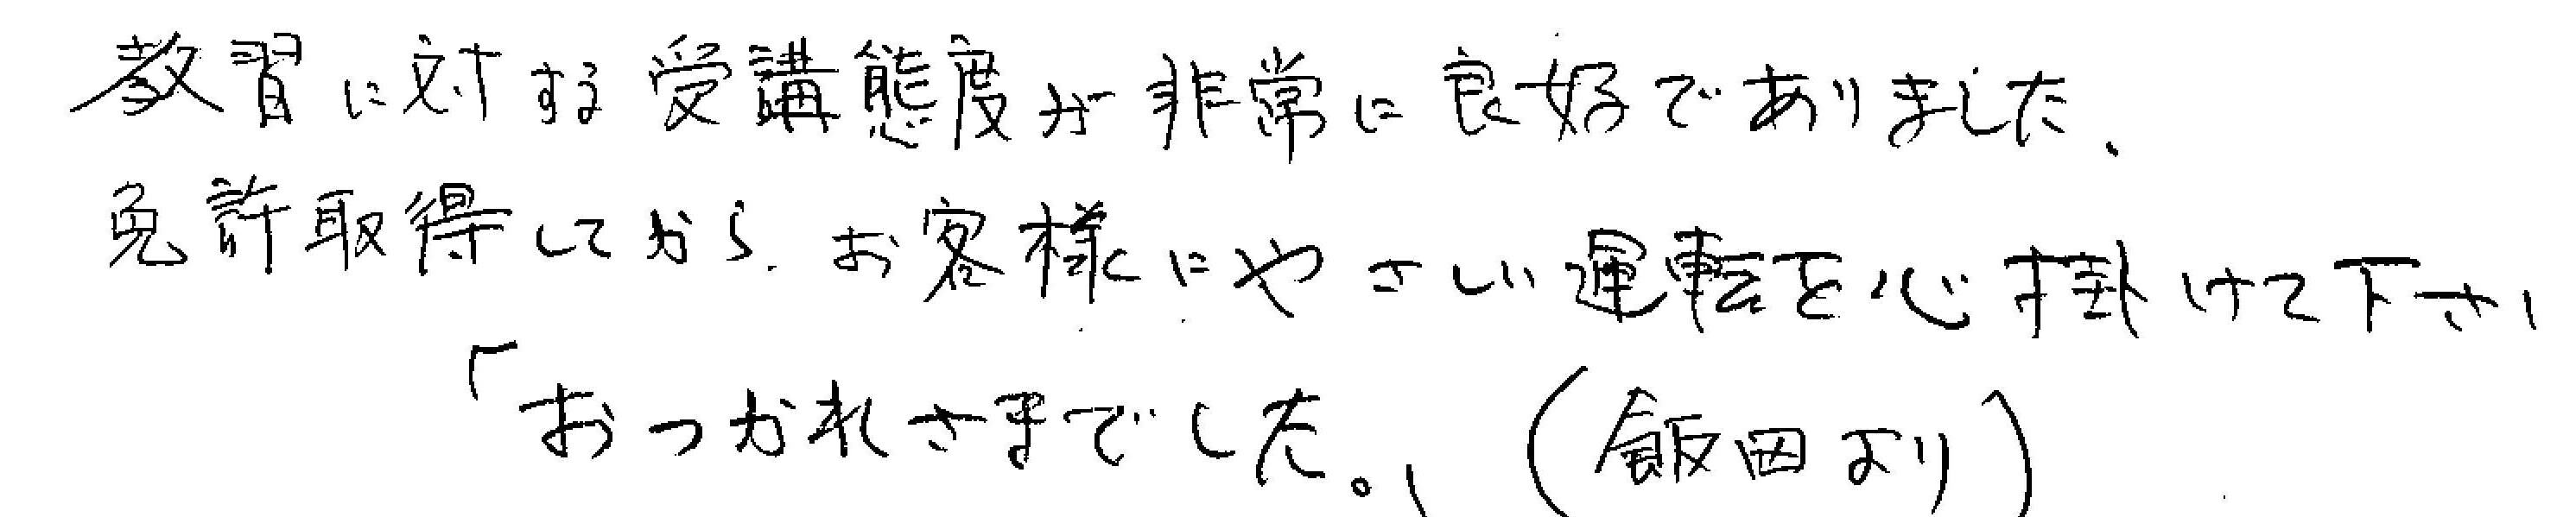 教習に対する受講態度が非常に良好でありました、
免許取得してから、お客様にやさしい運転を心掛けて下さい
「おつかれさまでした。」(飯田より)